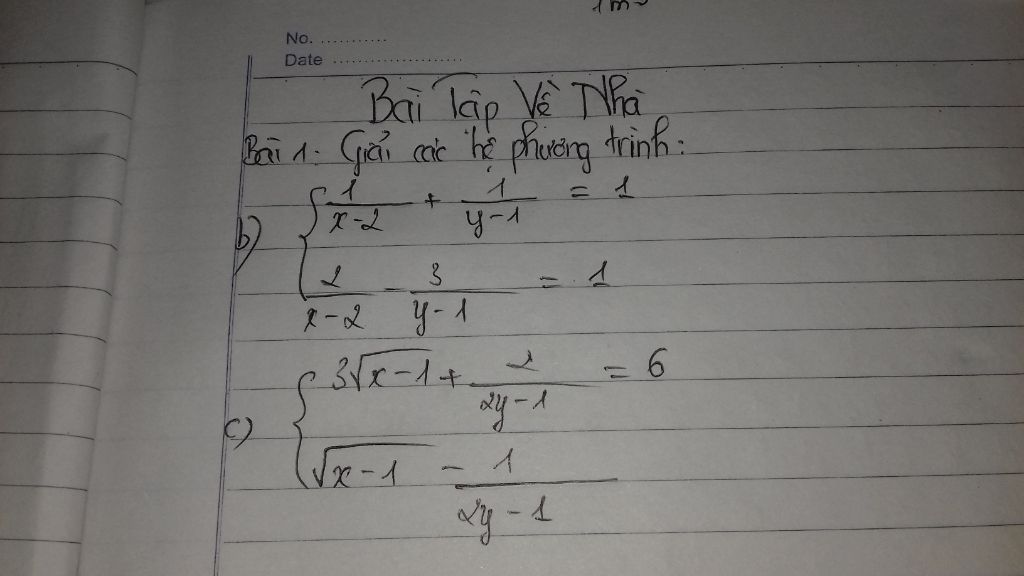 1m
No. ...........
Date ......................
Bài Tập Về Nhà
Bài 1: Giải các hệ phương trình:
b) { 1/(x-2) + 1/(y-1) = 1
2/(x-2) - 3/(y-1) = 1
c) { 3√(x-1) + 2/(2y-1) = 6
√(x-1) - 1/(2y-1)